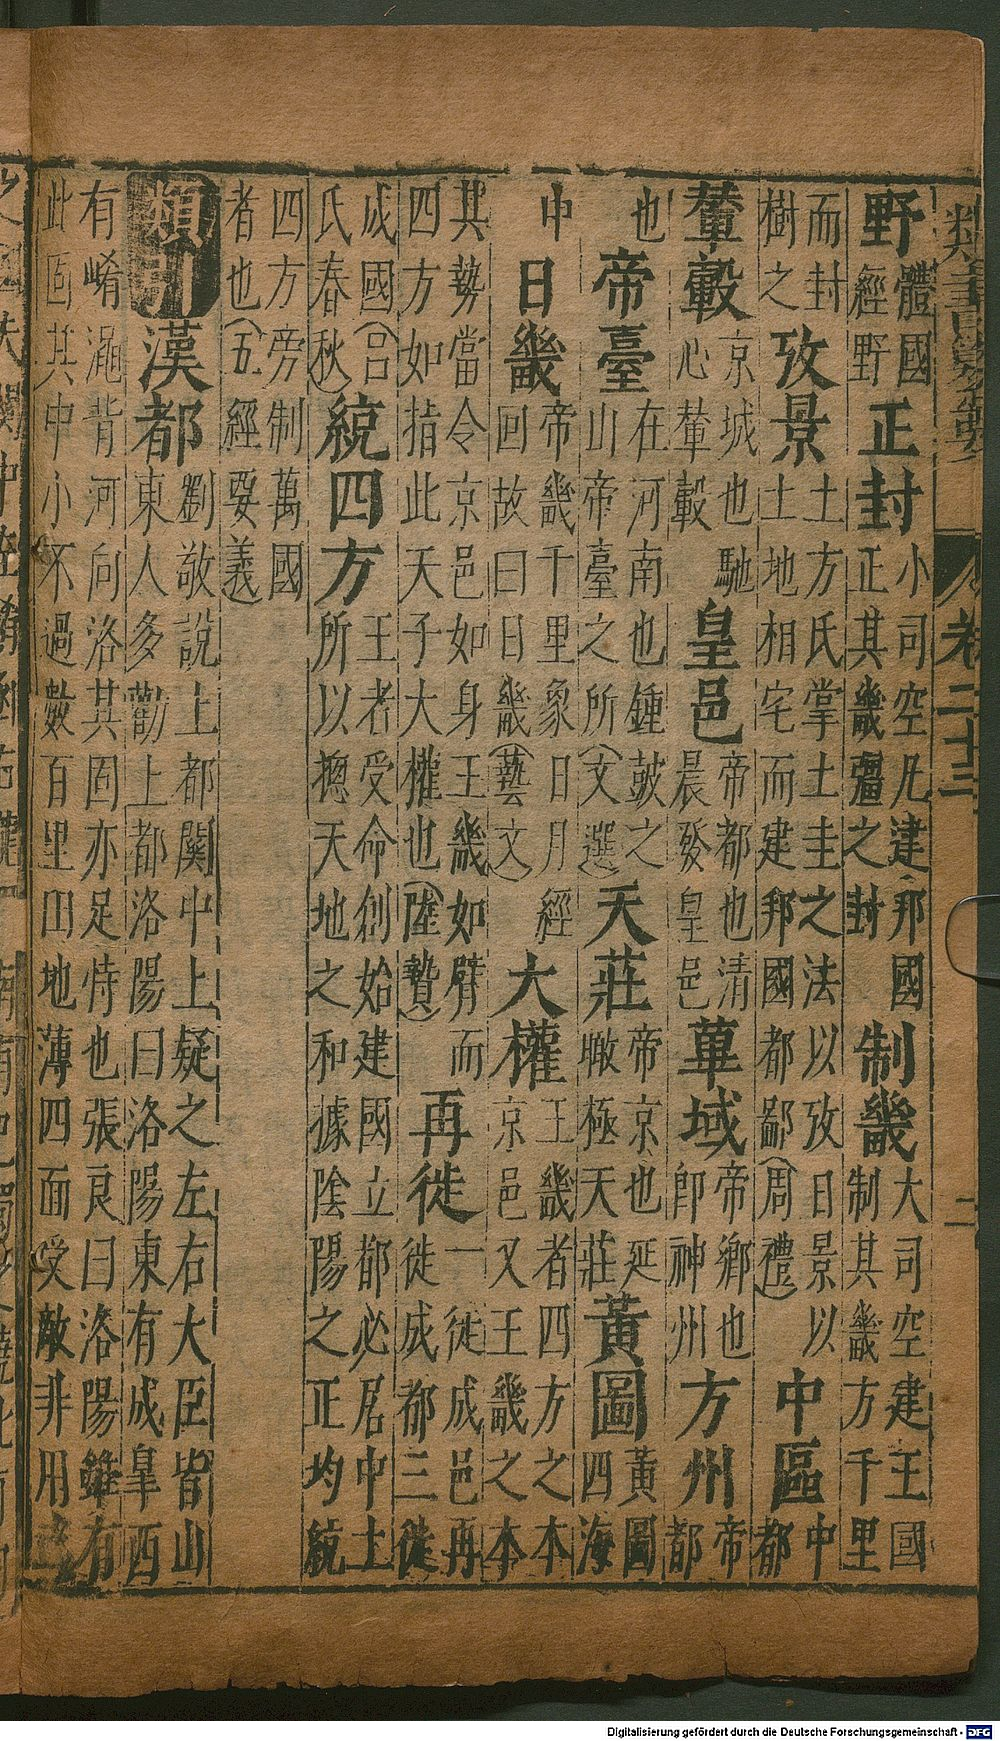 卷二十三 二
野體國經野正封小司空凡建邦國正其畿疆之封制畿大司空建王國制其畿方千里
而封樹之攷景土方氏掌土圭之法以攷日景以土地相宅而建邦國都鄙(周禮)中區中都
輦轂京城也馳心輦轂皇邑帝都也清晨發皇邑華域帝鄉也即神州方州帝都
也帝臺在河南也鍾鼓之山帝臺之所(文選)天莊帝京也延瞰極天莊黃圖黃圖四海
中日畿帝畿千里象日月經回故曰日畿(藝文)大權王畿者四方之本京邑又王畿之本
其勢當令京邑如身王畿如臂而四方如指此天子大權也(陸贄)再徙一徙成邑再徙成都三徙
成國(呂氏春秋)統四方王者受命創始建國立都必居中土所以摠天地之和據陰陽之正均統
四方旁制萬國者也(五經要義)
類漢都劉敬說上都關中上疑之左右大臣皆山東人多勸上都洛陽曰洛陽東有成臯西
有崤澠背河向洛其固亦足恃也張良曰洛陽雖有此固其中小不過數百里田地薄四面受敵非用
Digitalisierung gefördert durch die Deutsche Forschungsgemeinschaft - DFG